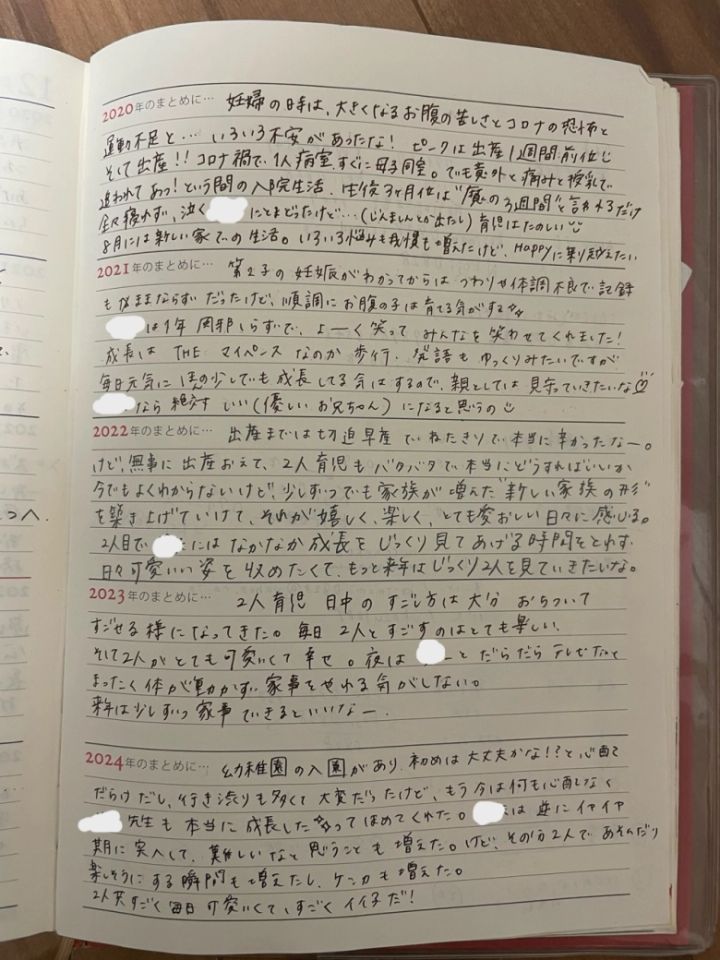 2020年のまとめに… 妊婦の時は、大きくなるお腹の苦しさとコロナの恐怖と
運動不足と… いろいろ不安があったな! ピークは出産1週間前位し
そして出産!! コロナ禍で、1人病室、すぐに母子同室。でも意外と痛みと授乳で
追われてあっ!という間の入院生活。生後3ヶ月位は"魔の3週間"と言われるだけ
全々寝れず、泣く にとまどったけど…(じんましんとか出たし)育児はたのしい
8月には新しい家での生活。いろいろ悩みも我慢も増えたけど、Happyに乗り越えたい
2021年のまとめに… 第2子の妊娠がわかってからは つわりや体調不良で記録
もままならずだったけど、順調にお腹の子は育てる気がする
は1年風邪しらずで、よーく笑って みんなを笑わせてくれました!
成長は THE マイペース なのか 歩行、発語も ゆっくりみたいですが
毎日元気に ほんの少しでも成長してる気はするので、親としては 見守っていきたいな
なら 絶対 いい(優しいお兄ちゃん)になると思うの
2022年のまとめに… 出産までは切迫早産でねたきりで本当に辛かったなー。
けど、無事に出産おえて、2人育児もバタバタで本当にどうすればいいか
今でもよくわからないけど、少しずつでも家族が増えた"新しい家族の形"
を築き上げていけて、それが嬉しく、楽しく、とても愛おしい日々に感じる。
2人目で には なかなか成長をじっくり見てあげる時間をとれず
日々可愛いい姿を収めたくて、もっと来年はじっくり2人を見ていきたいな。
2023年のまとめに… 2人育児 日中の すごし方は大分 おちついて
すごせる様になってきた。毎日 2人とすごすのはとても楽しい、
そして2人がとても可愛いくて幸せ。夜は ーと だらだら テレビ
まったく体が動かず、家事をやれる気がしない。
来年は少しずつ家事できるといいなー。
2024年のまとめに… 幼稚園の入園があり、初めは大丈夫かな!?と心配
だらけだし、行き渋りも多くて大変だったけど、もう今は何も心配なく
先生も 本当に成長した ってほめてくれた。 は 逆にイヤイヤ
期に突入して、難しいなと思うことも増えた。けど、その分2人であそんだり
楽しそうにする瞬間も増えたし、ケンカも増えた。
2人共すごく毎日可愛いくて、すごくイイ子だ!